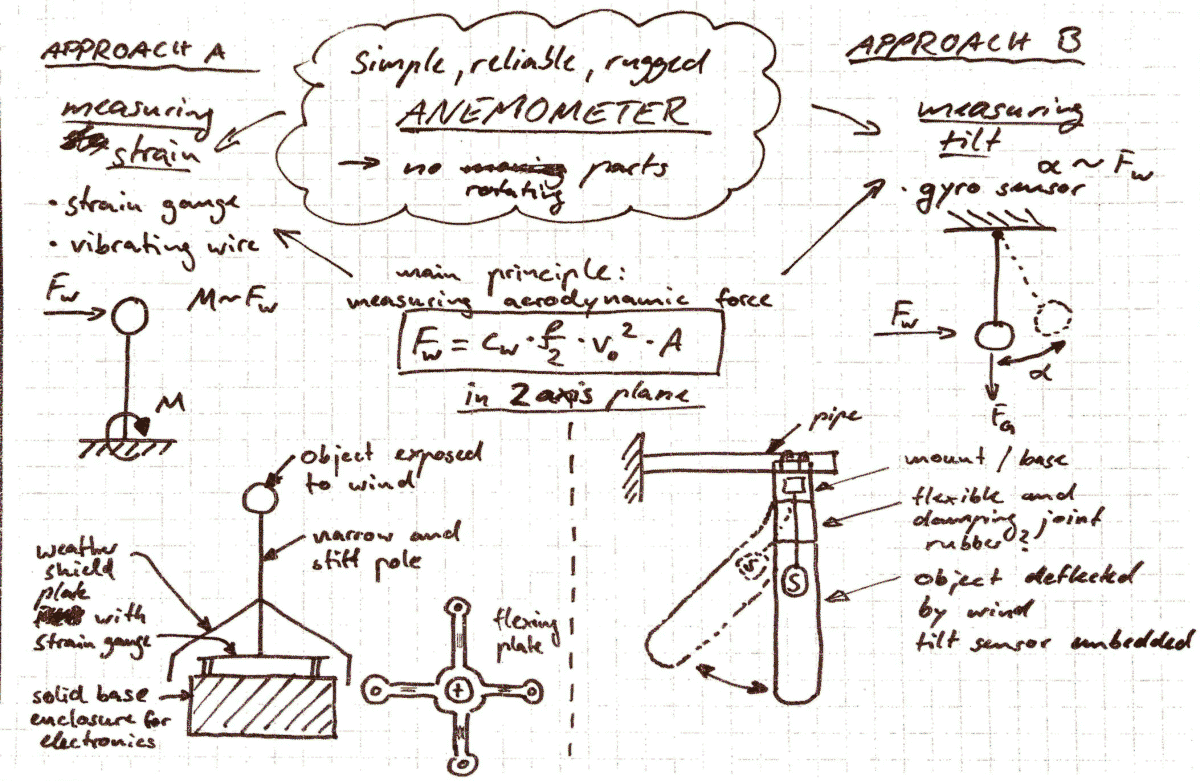 APPROACH A
measuring
strain
• strain gauge
• vibrating wire
Fw
M~Fw
M
Simple, reliable, rugged
ANEMOMETER
→ no rotating parts
main principle:
measuring aerodynamic force
Fw = cw · ρ/2 · v₀² · A
in 2 axis plane
APPROACH B
measuring
tilt
α ~ Fw
• gyro sensor
Fw
α
FG
object exposed
to wind
narrow and
stiff pole
weather
shield
plate
with
strain gauge
solid base
enclosure for
electronics
flexing
plate
pipe
mount / base
flexible and
damping joint
rubber?
object deflected
by wind
tilt sensor embedded
S
S